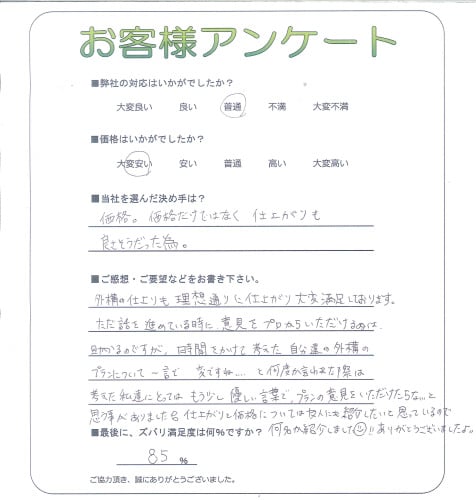 お客様アンケート
■弊社の対応はいかがでしたか？
大変良い 良い 普通 不満 大変不満
■価格はいかがでしたか？
大変安い 安い 普通 高い 大変高い
■当社を選んだ決め手は？
価格。価格だけではなく 仕上がりも
良さそうだった為。
■ご感想・ご要望などをお書き下さい。
外構の仕上りも 理想通りに仕上がり 大変満足しております。
ただ話を進めている時に、意見をプロからいただけるのは、
助かるのですが、時間をかけて考えた 自分達の外構の
プランについて 一言で 変ですね…. と何度か言われた事は
考えた私達にとっては もう少し 優しい言葉で、プランの意見をいただけたらな…と
思う事がありました 仕上がりと価格については友人にも紹介したいと思っているので
■最後に、ズバリ満足度は何％ですか？ 何名か紹介しました ありがとうございましたよ。
85 %
ご協力頂き、誠にありがとうございました。